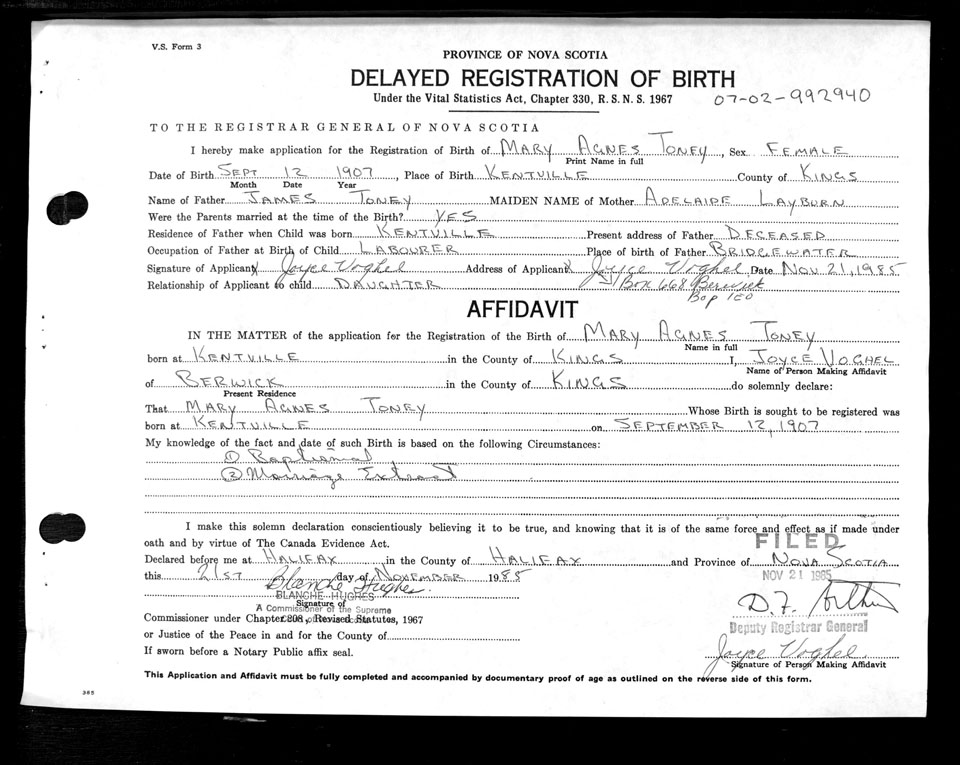 V.S. Form 3
PROVINCE OF NOVA SCOTIA
DELAYED REGISTRATION OF BIRTH
Under the Vital Statistics Act, Chapter 330, R.S.N.S. 1967 07-02-992940
TO THE REGISTRAR GENERAL OF NOVA SCOTIA
I hereby make application for the Registration of Birth of MARY AGNES TONEY, Sex FEMALE
Print Name in full
Date of Birth SEPT 12 1907, Place of Birth KENTVILLE County of KINGS
Month Date Year
Name of Father JAMES TONEY MAIDEN NAME of Mother ADELAIDE LAYBURN
Were the Parents married at the time of the Birth? YES
Residence of Father when Child was born KENTVILLE Present address of Father DECEASED
Occupation of Father at Birth of Child LABOURER Place of birth of Father BRIDGEWATER
Signature of Applicant X Joyce Voghel Address of Applicant X Joyce Voghel Date NOV 21, 1985
Relationship of Applicant to child DAUGHTER Box 668 Berwick
Bop 1E0
AFFIDAVIT
IN THE MATTER of the application for the Registration of the Birth of MARY AGNES TONEY
Name in full
born at KENTVILLE in the County of KINGS I, JOYCE VOGHEL
Name of Person Making Affidavit
of BERWICK in the County of KINGS do solemnly declare:
Present Residence
That MARY AGNES TONEY Whose Birth is sought to be registered was
born at KENTVILLE on SEPTEMBER 12, 1907
My knowledge of the fact and date of such Birth is based on the following Circumstances:
① Baptismal
② Marriage Extract
I make this solemn declaration conscientiously believing it to be true, and knowing that it is of the same force and effect as if made under
oath and by virtue of The Canada Evidence Act.
FILED
Declared before me at HALIFAX in the County of HALIFAX and Province of NOVA SCOTIA
this 21ST day of NOVEMBER 1985
NOV 21 1985
Blanche Hughes
BLANCHE HUGHES
Signature of
A Commissioner of the Supreme
D.F.
Commissioner under Chapter 308, Revised Statutes, 1967
Deputy Registrar General
or Justice of the Peace in and for the County of
Joyce Voghel
If sworn before a Notary Public affix seal.
Signature of Person Making Affidavit
This Application and Affidavit must be fully completed and accompanied by documentary proof of age as outlined on the reverse side of this form.
365